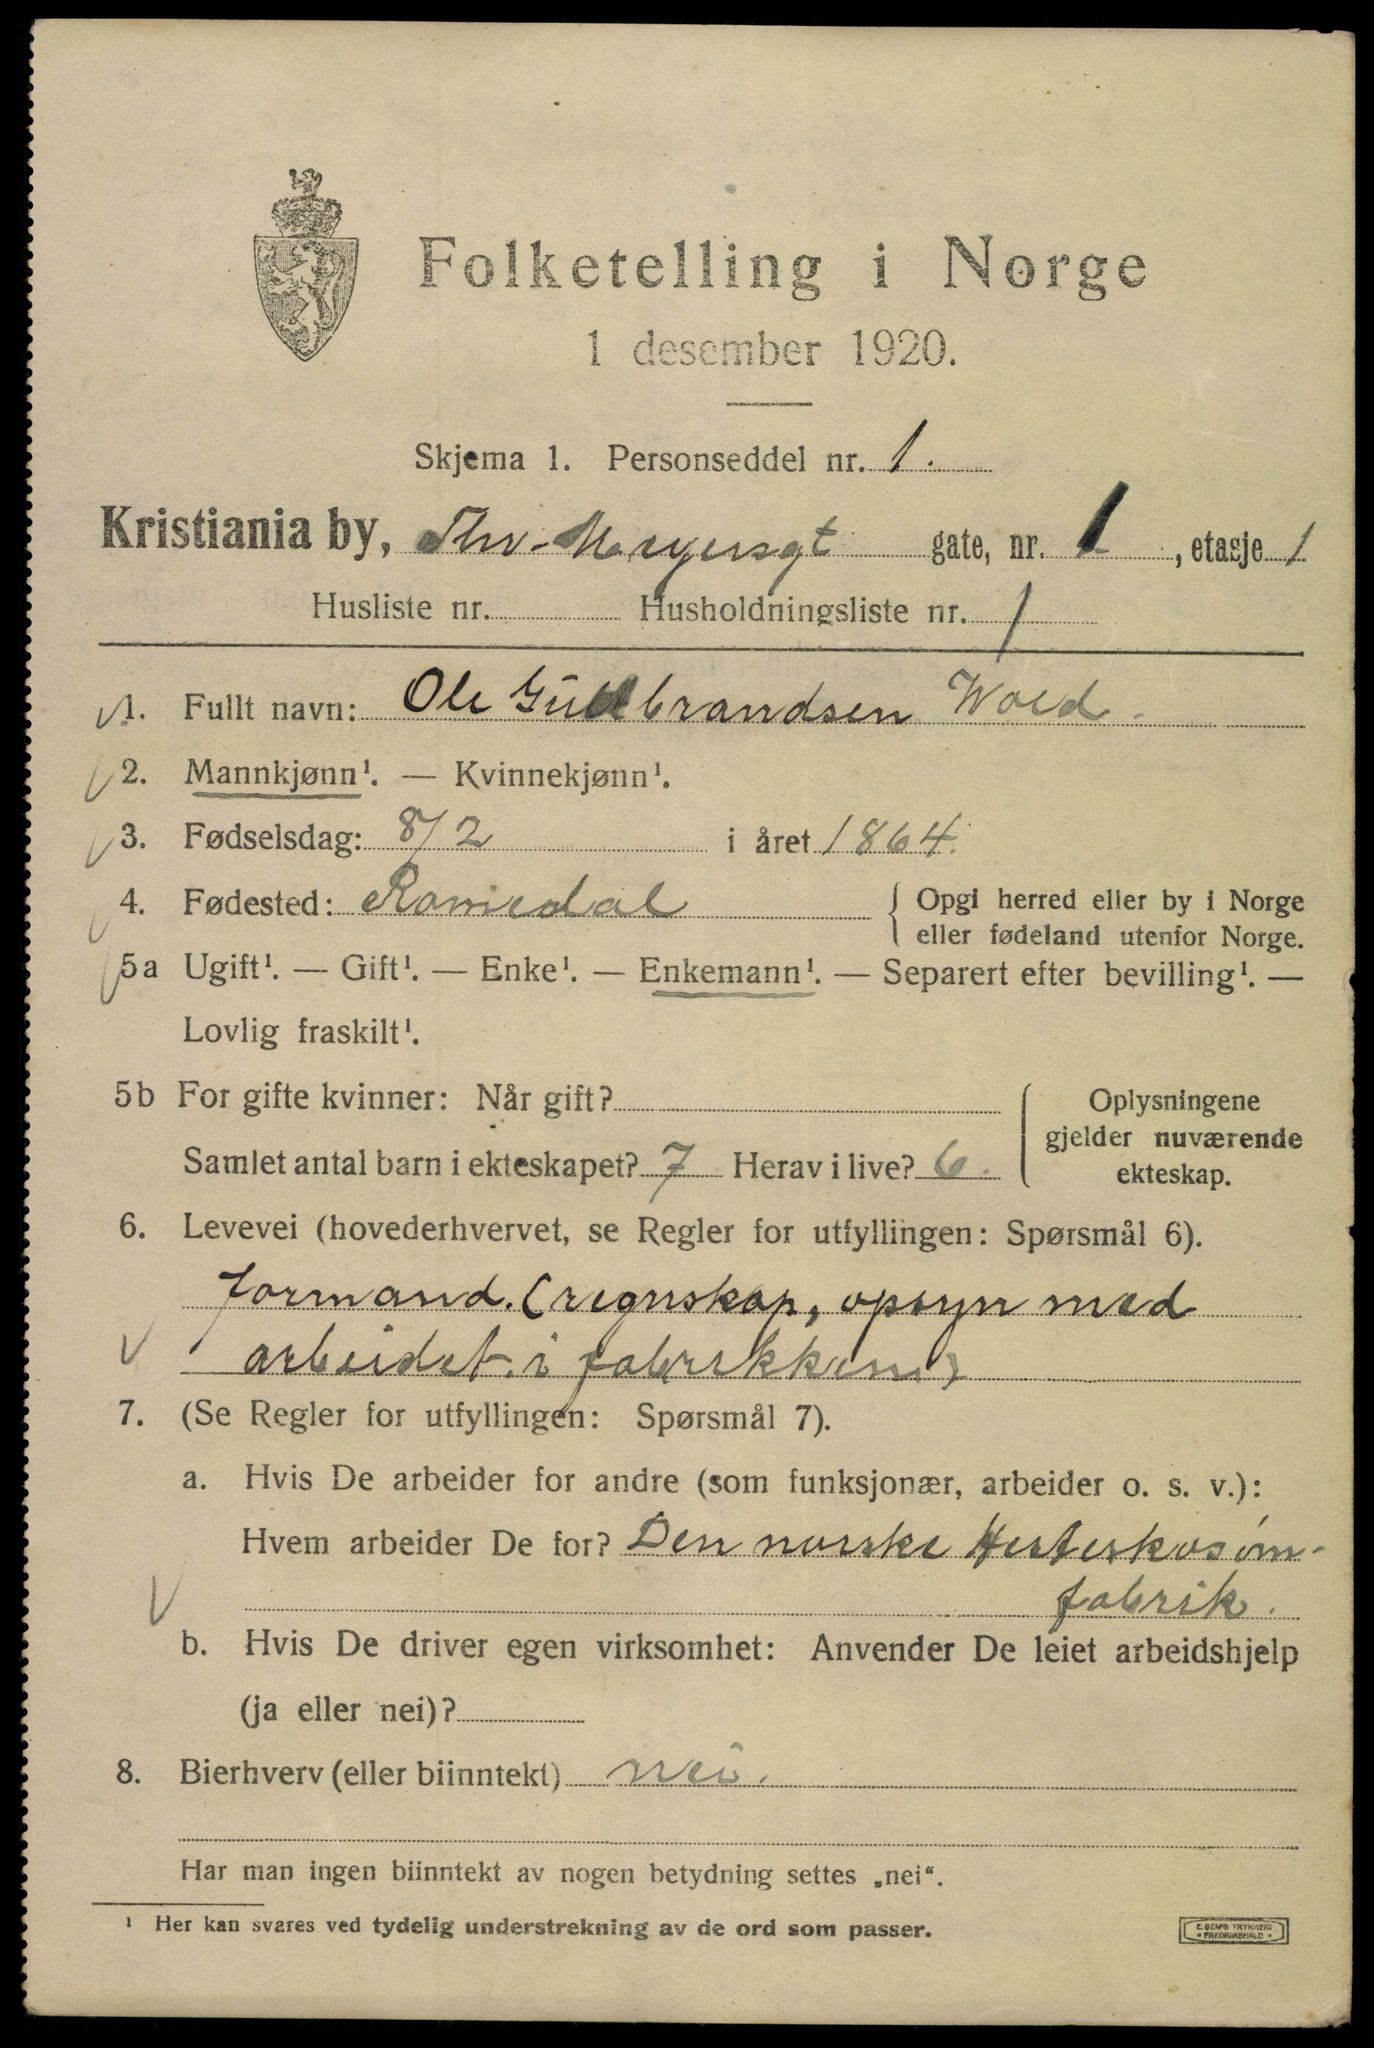 Folketelling i Norge
1 desember 1920.
Skjema 1. Personseddel nr. 1.
Kristiania by, Thv. Meyersgt gate, nr. 1, etasje 1
Husliste nr. Husholdningsliste nr. 1
1. Fullt navn: Ole Gulbrandsen Wold.
2. Mannkjønn¹. — Kvinnekjønn¹.
3. Fødselsdag: 8/2 i året 1864.
4. Fødested: Romedal { Opgi herred eller by i Norge
eller fødeland utenfor Norge.
5a Ugift¹. — Gift¹. — Enke¹. — Enkemann¹. — Separert efter bevilling¹. —
Lovlig fraskilt¹.
5b For gifte kvinner: Når gift?
Samlet antal barn i ekteskapet? 7 Herav i live? 6.
Oplysningene
gjelder nuværende
ekteskap.
6. Levevei (hovederhvervet, se Regler for utfyllingen: Spørsmål 6).
formand. (regnskap, opsyn med
arbeidet i fabrikken)
7. (Se Regler for utfyllingen: Spørsmål 7).
a. Hvis De arbeider for andre (som funksjonær, arbeider o. s. v.):
Hvem arbeider De for? Den norske Hesteskosøm-
fabrik.
b. Hvis De driver egen virksomhet: Anvender De leiet arbeidshjelp
(ja eller nei)?
8. Bierhverv (eller biinntekt) nei.
Har man ingen biinntekt av nogen betydning settes „nei“.
¹ Her kan svares ved tydelig understrekning av de ord som passer.
E. SEM'S TRYKKERI
• FREDRIKSHALD •